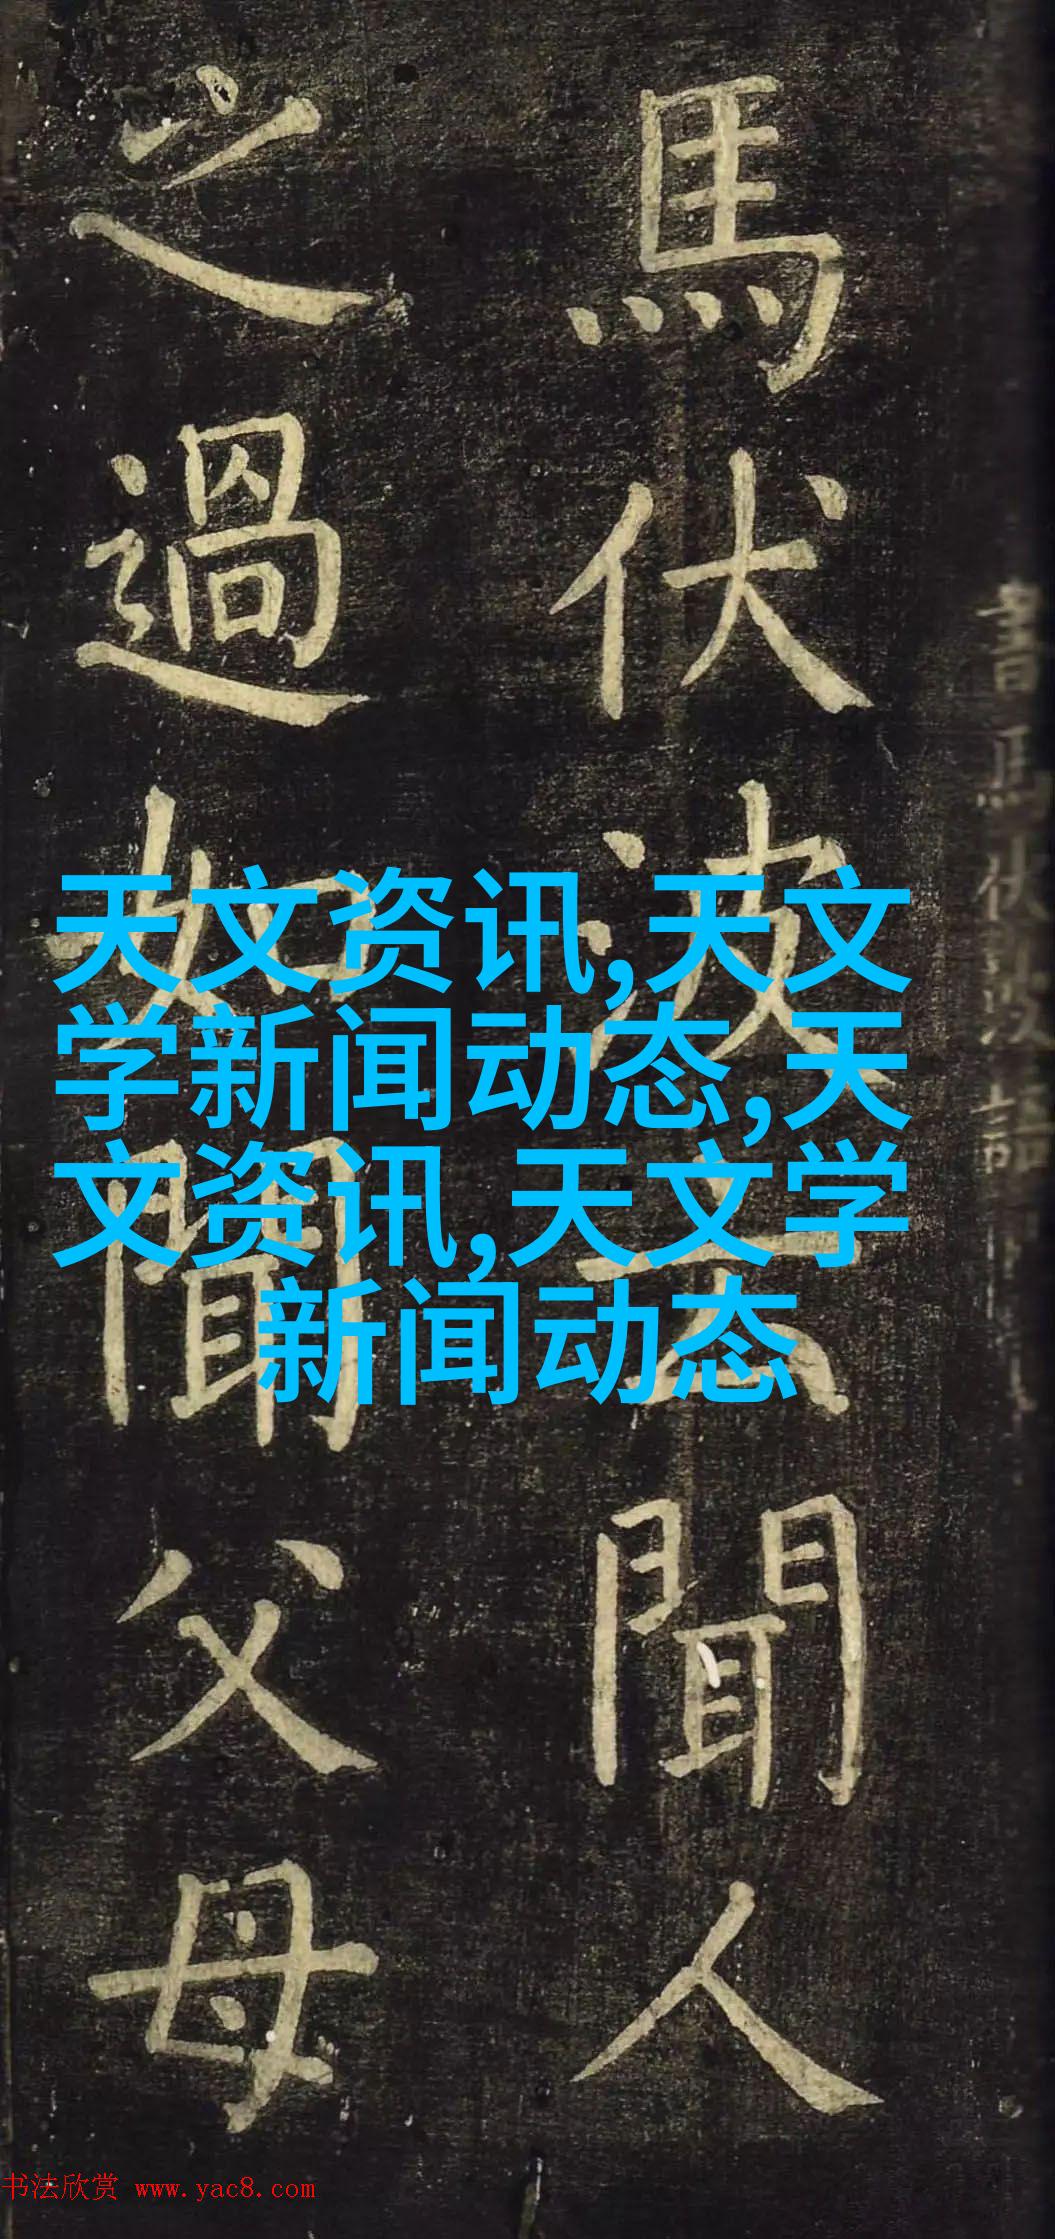 馬伏波云聞人
之過如聞父母
天文资讯,天文
学新闻动态,天
文资讯,天文学
新闻动态
书法欣赏 www.yac8.com